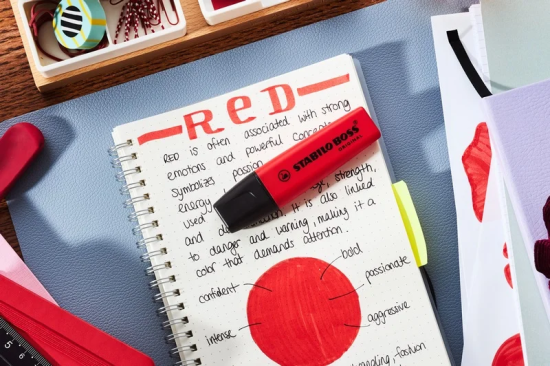 RED
RED is often associated with strong
emotions and powerful concepts
symbolizes passion
energy
used strength,
and It is also linked
to danger and warning, making it a
color that demands attention.
STABILO BOSS
ORIGINAL
bold
confident
passionate
intense
aggressive
fashion
5